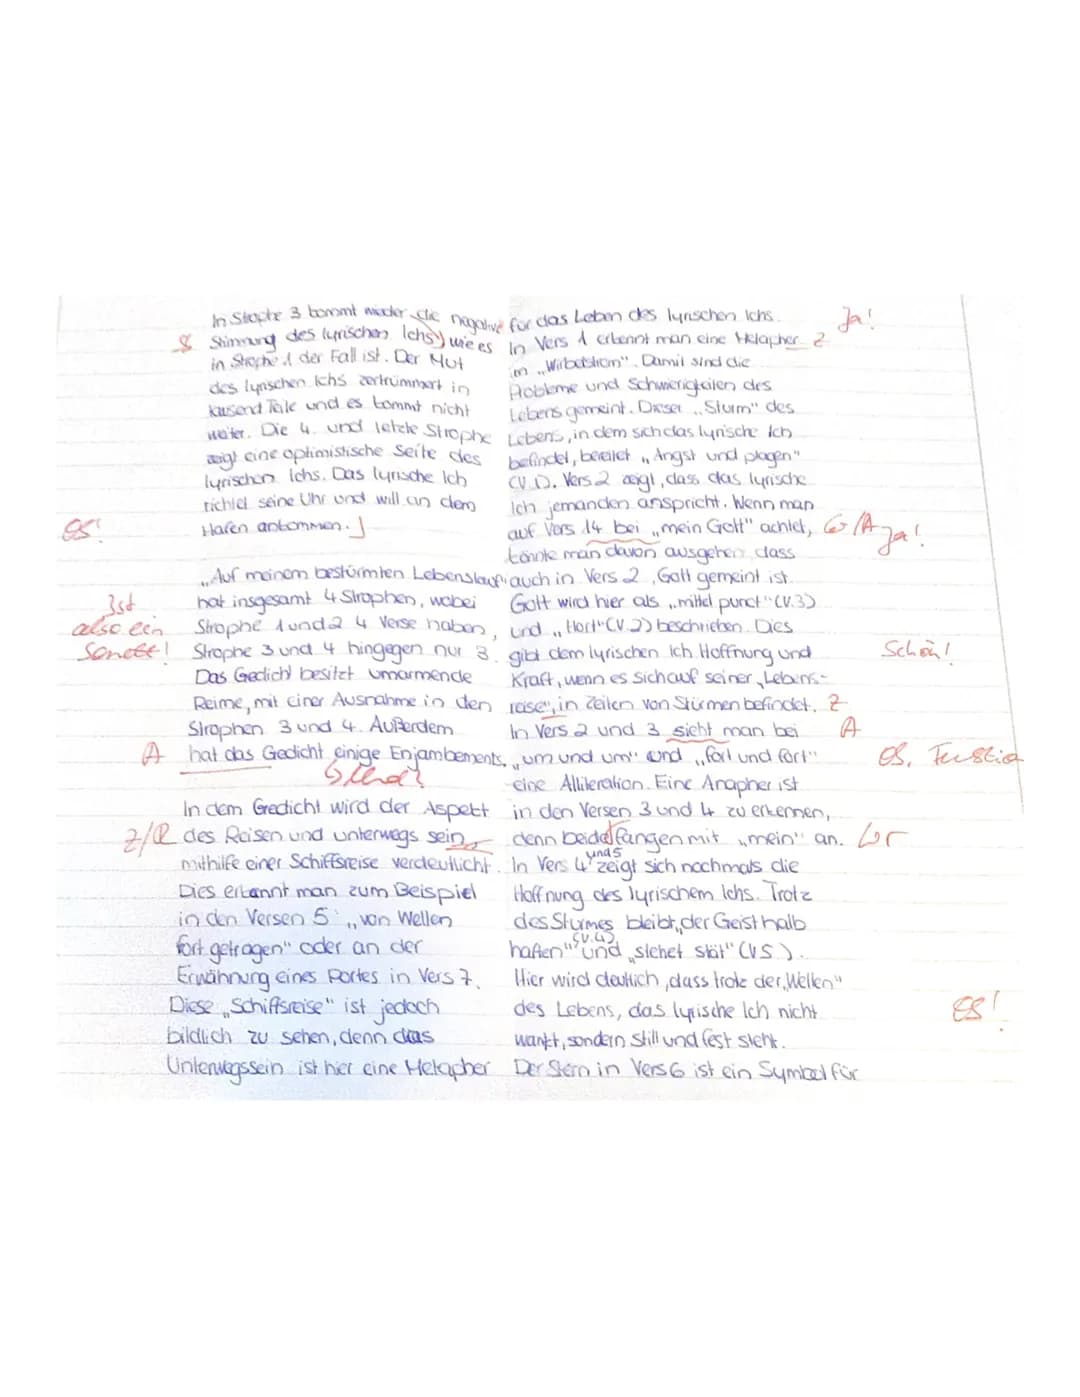 In Strophe 3 kommt wieder die negative
Stimmung des lyrischen Ichs, wie es
in Strophe 1 der Fall ist. Der Mut
des lyrischen Ichs zertrümmert in
tausend Teile und es kommt nicht
weiter. Die 4. und letzte Strophe
zeigt eine optimistische Seite des
lyrischen Ichs. Das lyrische Ich
richtet seine Uhr und will an dem
Hafen ankommen.
es!
„Auf meinem bestürmten Lebenslauf"
hat insgesamt 4 Strophen, wobei
Strophe 1 und 2 4 Verse haben,
Strophe 3 und 4 hingegen nur 3.
Ist
also ein
Sonett!
Das Gedicht besitzt umarmende
Reime, mit einer Ausnahme in den
Strophen 3 und 4. Außerdem
A hat das Gedicht einige Enjambements.
In dem Gedicht wird der Aspekt
Z/R des Reisen und unterwegs sein
mithilfe einer Schiffsreise verdeutlicht.
Dies erkennt man zum Beispiel
in den Versen 5 „von Wellen
fort getragen" oder an der
Erwähnung eines Portes in Vers 7.
Diese „Schiffsreise" ist jedoch
bildlich zu sehen, denn das
Unterwegssein ist hier eine Metapher
für das Leben des lyrischen Ichs. Ja!
In Vers 1 erkennt man eine Metapher Z
in „Wirbelstrom". Damit sind die
Probleme und Schwierigkeiten des
Lebens gemeint. Dieser „Sturm" des
Lebens, in dem sich das lyrische Ich
befindet, bereitet „Angst und plagen"
(V.1). Vers 2 zeigt, dass das lyrische
Ich jemanden anspricht. Wenn man
auf Vers 14 bei „mein Gott" achtet, Gr/A Ja!
könnte man davon ausgehen dass
auch in Vers 2, Gott gemeint ist.
Gott wird hier als „mittel punct" (V.3)
und „Hort" (V.2) beschrieben. Dies
gibt dem lyrischen Ich Hoffnung und Schön!
Kraft, wenn es sich auf seiner „Lebens-
reise", in Zeiten von Stürmen befindet. Z
In Vers 2 und 3 sieht man bei A
„um und um" und „fort und fort" es, Funktion
eine Alliteration. Eine Anapher ist
in den Versen 3 und 4 zu erkennen,
denn beide fangen mit „mein" an. Gr
In Vers 4 und 5 zeigt sich nochmals die
Hoffnung des lyrischem Ichs. Trotz
des Sturmes bleibt „der Geist halb
haften" (V.4) und „stehet stät" (V.5).
Hier wird deutlich, dass trotz der „Wellen"
des Lebens, das lyrische Ich nicht es!
wankt, sondern still und fest steht.
Der Stern in Vers 6 ist ein Symbol für